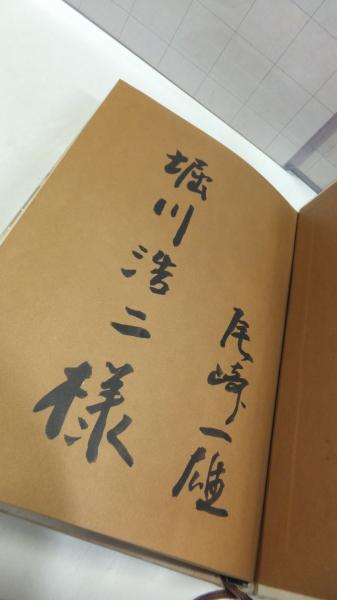 堀川浩二様
尾崎一雄